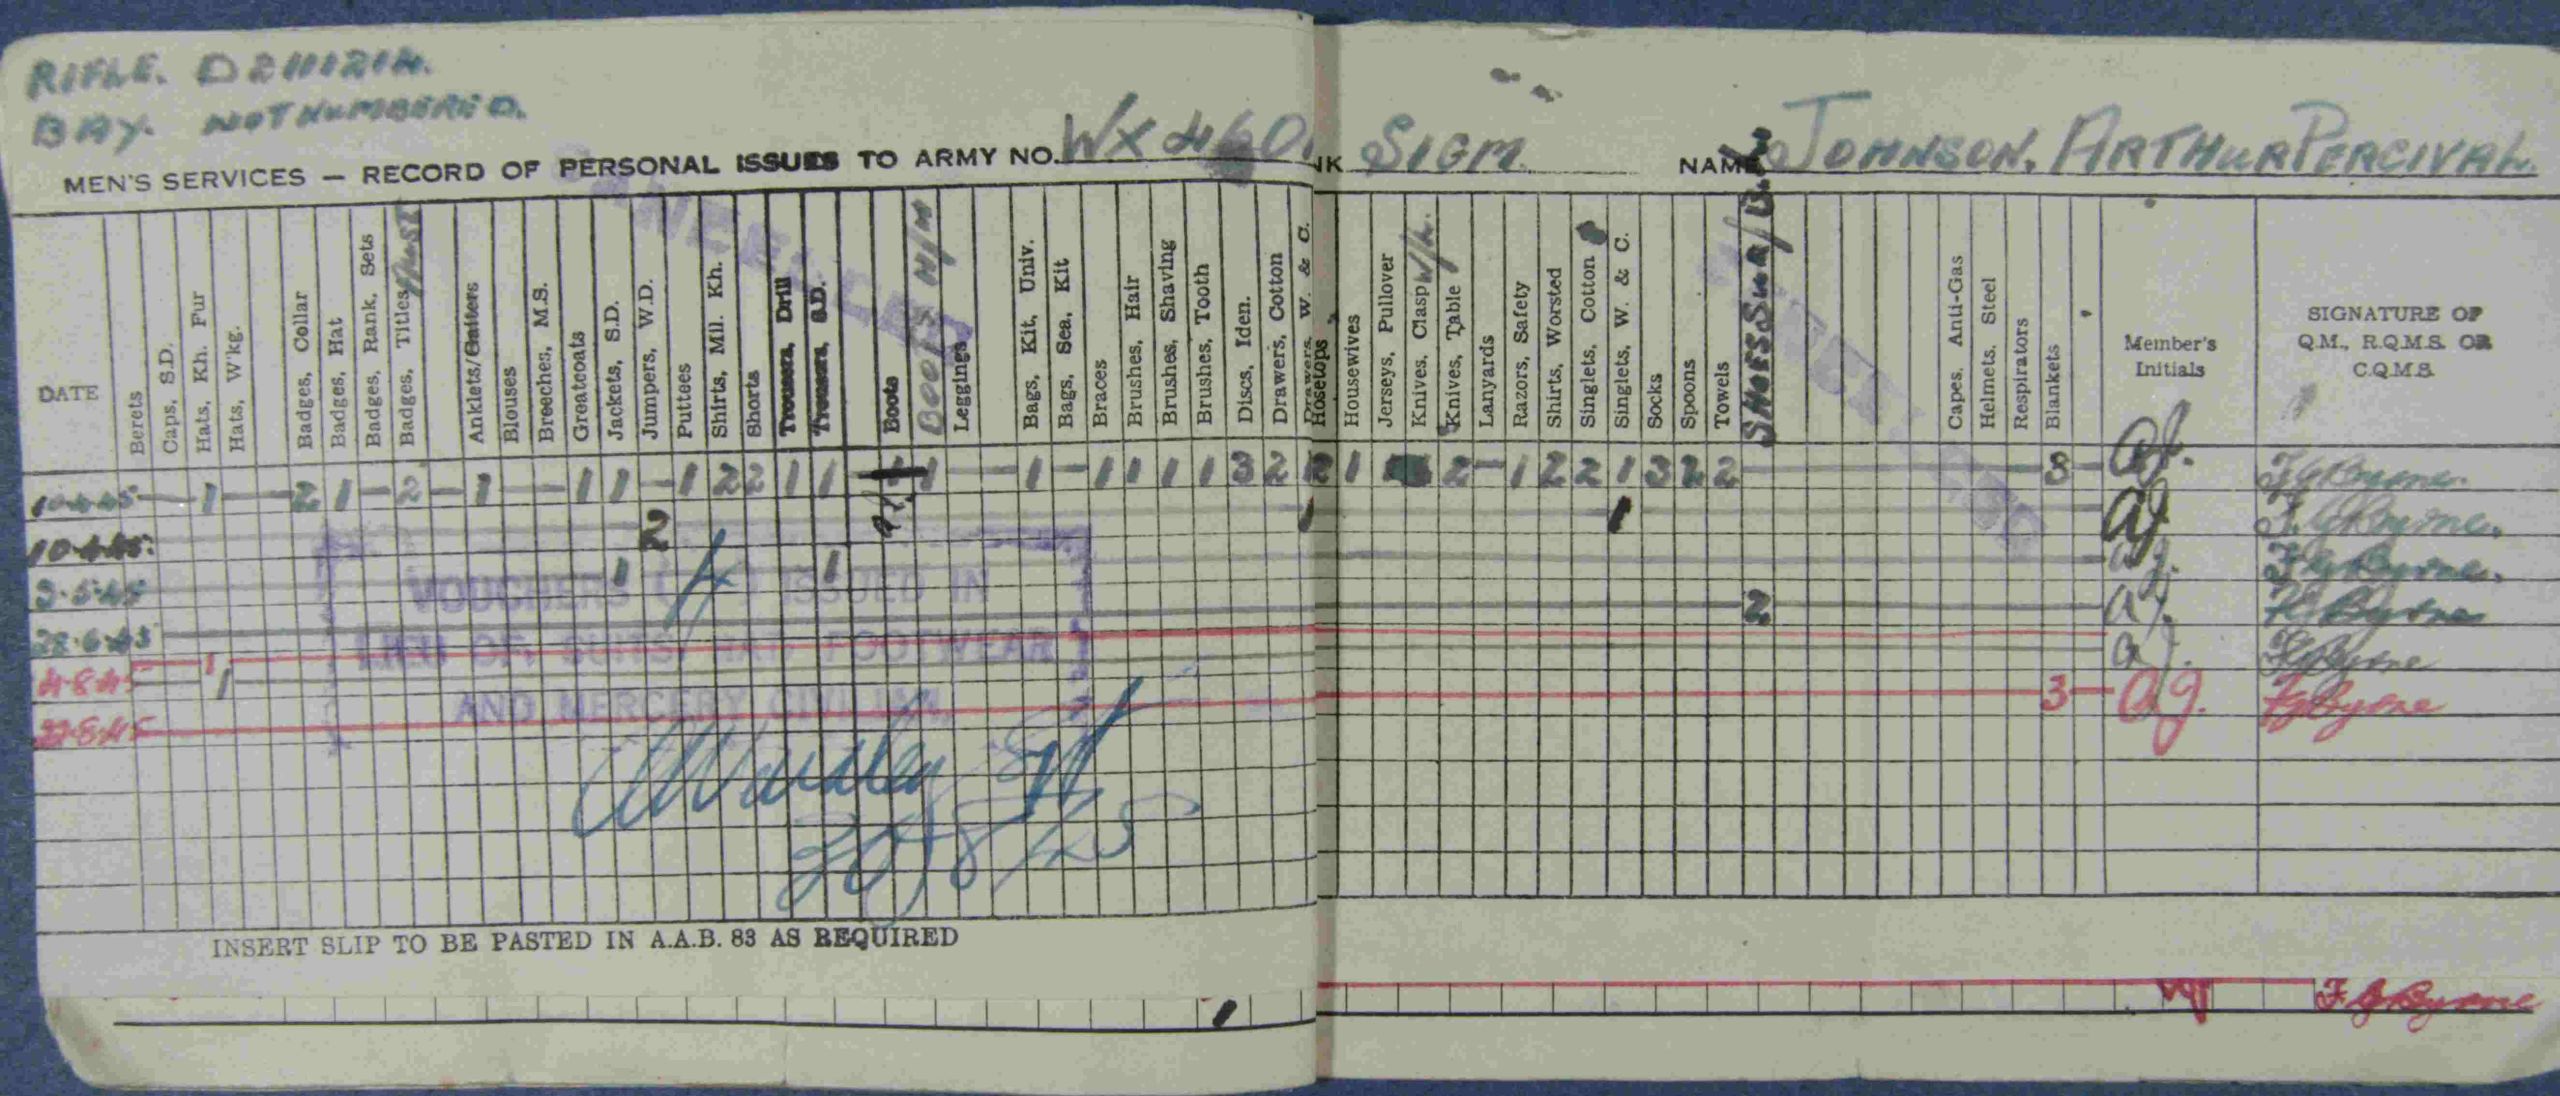 RIFLE. D2111214.
BAY. NOT NUMBERED.
MEN'S SERVICES — RECORD OF PERSONAL ISSUES TO ARMY NO. NK SIGM. NAME JOHNSON, ARTHUR PERCIVAL.
DATE
Berets
Caps, S.D.
Hats, Kh. Fur
Hats, W'kg.
Badges, Collar
Badges, Hat
Badges, Rank, Sets
Badges, Titles
Anklets/Gaiters
Blouses
Breeches, M.S.
Greatcoats
Jackets, S.D.
Jumpers, W.D.
Puttees
Shirts, Mil. Kh.
Shorts
Trousers, Drill
Trousers, S.D.
Boots
BOOTS
Leggings
Bags, Kit, Univ.
Bags, Sea, Kit
Braces
Brushes, Hair
Brushes, Shaving
Brushes, Tooth
Discs, Iden.
Drawers, Cotton
Drawers, W. & C.
Hosetops
Housewives
Jerseys, Pullover
Knives, Clasp
Knives, Table
Lanyards
Razors, Safety
Shirts, Worsted
Singlets, Cotton
Singlets, W. & C.
Socks
Spoons
Towels
SHOES
Capes, Anti-Gas
Helmets, Steel
Respirators
Blankets
Member's
Initials
SIGNATURE OF
Q.M., R.Q.M.S. OR
C.Q.M.S.
10.4.45 1 2 1 2 1 1 1 1 2 2 1 1 1 1 1 1 1 1 3 2 2 1 2 1 2 2 1 3 2 2 3 AJ. F G Byrne.
10.4.45. 2 1 1 AJ F. G Byrne.
1 1 a J. F G Byrne.
2 a J. F G Byrne
4.8.45 1 1 a J. F G Byrne
3 AJ. F G Byrne
VOUCHERS (4) ISSUED IN
LIEU OF SUITS/HAT FOOTWEAR
AND MERCERY CIVILIAN.
CANCELLED
Sgt
30/8/45
INSERT SLIP TO BE PASTED IN A.A.B. 83 AS REQUIRED
1 F G Byrne